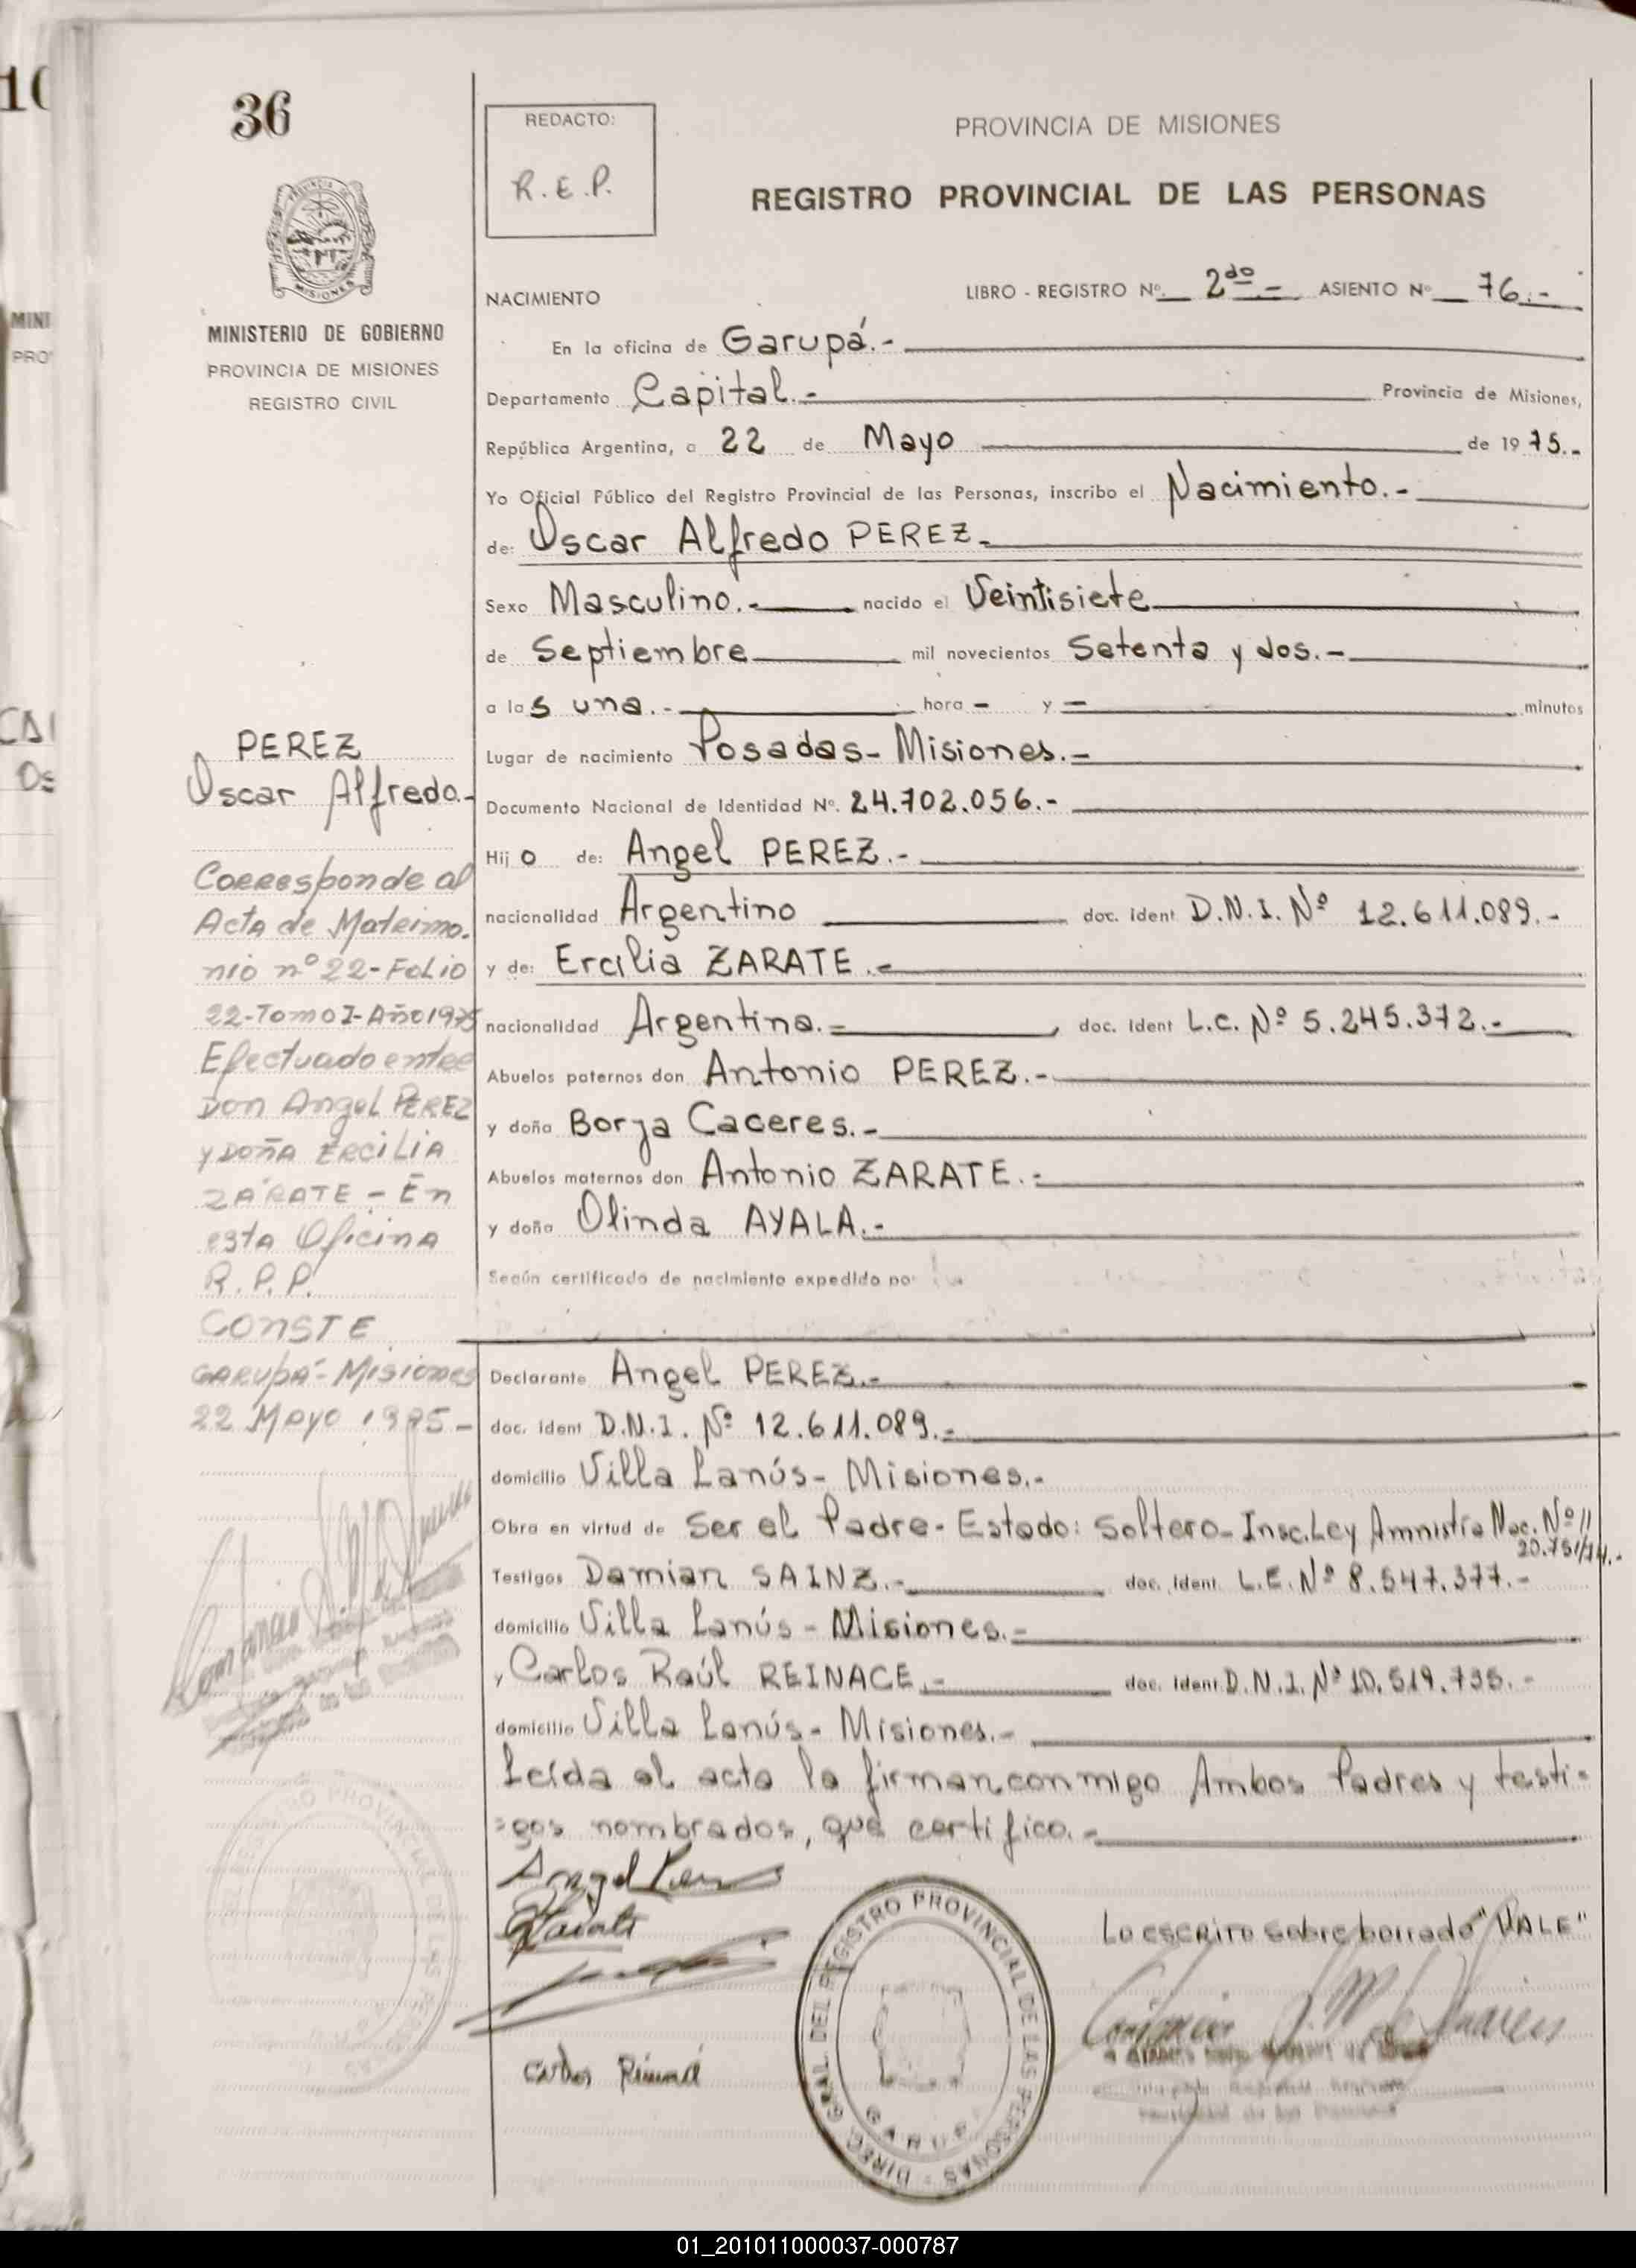 36
MINISTERIO DE GOBIERNO
PROVINCIA DE MISIONES
REGISTRO CIVIL
REDACTO:
R.E.P.
PROVINCIA DE MISIONES
REGISTRO PROVINCIAL DE LAS PERSONAS
NACIMIENTO
LIBRO - REGISTRO Nº 2do.- ASIENTO Nº 76.-
En la oficina de Garupá.-
Departamento Capital.- Provincia de Misiones,
República Argentina, a 22 de Mayo de 1975.-
Yo Oficial Público del Registro Provincial de las Personas, inscribo el Nacimiento.-
de: Oscar Alfredo PEREZ.-
Sexo Masculino.- nacido el Veintisiete
de Septiembre mil novecientos Setenta y dos.-
a las una.- hora - y - minutos
Lugar de nacimiento Posadas- Misiones.-
Documento Nacional de Identidad Nº. 24.702.056.-
Hijo de: Angel PEREZ.-
nacionalidad Argentino doc. ident D.N.I. Nº 12.611.089.-
y de: Ercilia ZARATE.-
nacionalidad Argentina.- doc. ident L.C. Nº 5.245.372.-
Abuelos paternos don Antonio PEREZ.-
y doña Borja Caceres.-
Abuelos maternos don Antonio ZARATE.-
y doña Olinda AYALA.-
Según certificado de nacimiento expedido por
Declarante Angel PEREZ.-
doc. ident D.N.I. Nº 12.611.089.-
domicilio Villa Lanús- Misiones.-
Obra en virtud de Ser el Padre- Estado: Soltero- Insc. Ley Amnistía Nac. Nº //
20.751/74.-
Testigos Damian SAINZ.- doc. ident. L.E. Nº 8.547.377.-
domicilio Villa Lanús - Misiones.-
y Carlos Raúl REINACE.- doc. ident. D.N.I. Nº 10.519.735.-
domicilio Villa Lanús- Misiones.-
Leída el acta la firman conmigo Ambos Padres y testi-
-gos nombrados, que certifico.-
Angel Perez
Lo escrito sobre borrado "VALE"
PEREZ
Oscar Alfredo.-
Corresponde al
Acta de Matrimo.
nio nº 22-Folio
22-Tomo I-Año 1975
Efectuado entre
Don Angel PEREZ
y DOÑA ERCILIA
ZÁRATE - En
esta Oficina
R.P.P.
CONSTE
GARUPÁ- Misiones
22 MAYO 1975-
DIREC. GRAL. DEL REGISTRO PROVINCIAL DE LAS PERSONAS
01_201011000037-000787